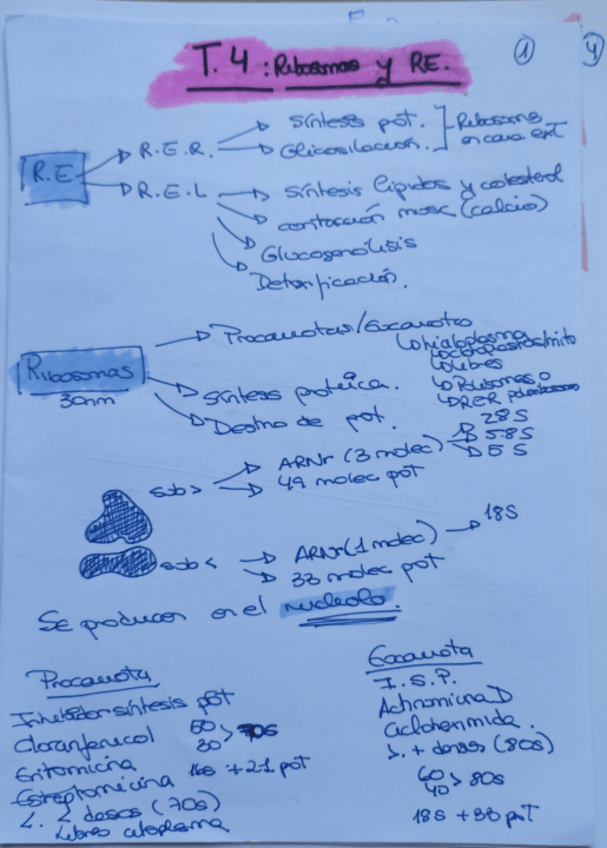 1
4
T.4: Ribosomas y RE.
R.E
R.E.R.
Síntesis pot.
Glicosilación.
Ribosomas en cara ext
R.E.L
Síntesis lípidos y colesterol
contracción musc (calcio)
Glucogenólisis
Detoxificación.
Ribosomas
30nm
Procariotas/Eucariotas
hialoplasma
cloroplastos/mito
libres
Polirribosomas o
RER
Síntesis proteica.
Destino de pot.
sub >
ARNr (3 molec)
28S
5.8S
5S
49 molec pot
sub <
ARNr (1 molec)
18S
33 molec pot
Se producen en el nucleolo.
Procariota
Inhibidor síntesis pot
Cloranfenicol
Eritomicina
Estreptomicina
50
30 > 70s
16s + 21 pot
<. < densos (70s)
libres citoplasma
Eucariota
I.S.P.
Actinomicina D
Cicloheximida.
>. + densos (80s)
60
40 > 80s
18s + 33 pot